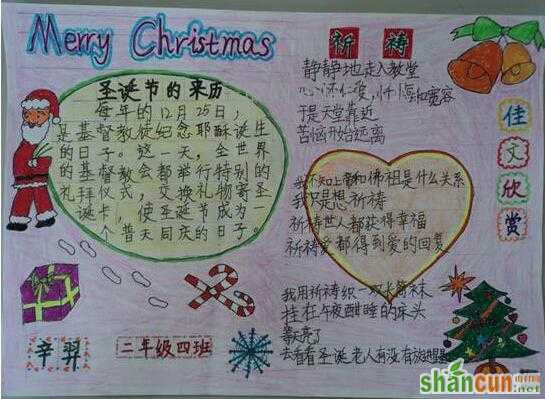 Merry Christmas
圣诞节的来历
每年的12月25日,
是基督教徒纪念耶稣诞生
的日子。这一天,全世界
的基督教会都举行特别的
礼拜仪式,交换礼物寄圣
诞卡,使圣诞节成为一
个普天同庆的日子。
辛羿
二年级四班
祈祷
静静地走入教堂
心怀仁爱,忏悔和宽容
于是天堂靠近
苦恼开始远离
我不知上帝和佛祖是什么关系
我只是想祈祷
祈祷世人都获得幸福
祈祷爱都得到爱的回复
我用祈祷织一双长筒袜
挂在午夜酣睡的床头
等天亮了
去看看圣诞老人有没有放进
佳文欣赏
shancun
.net